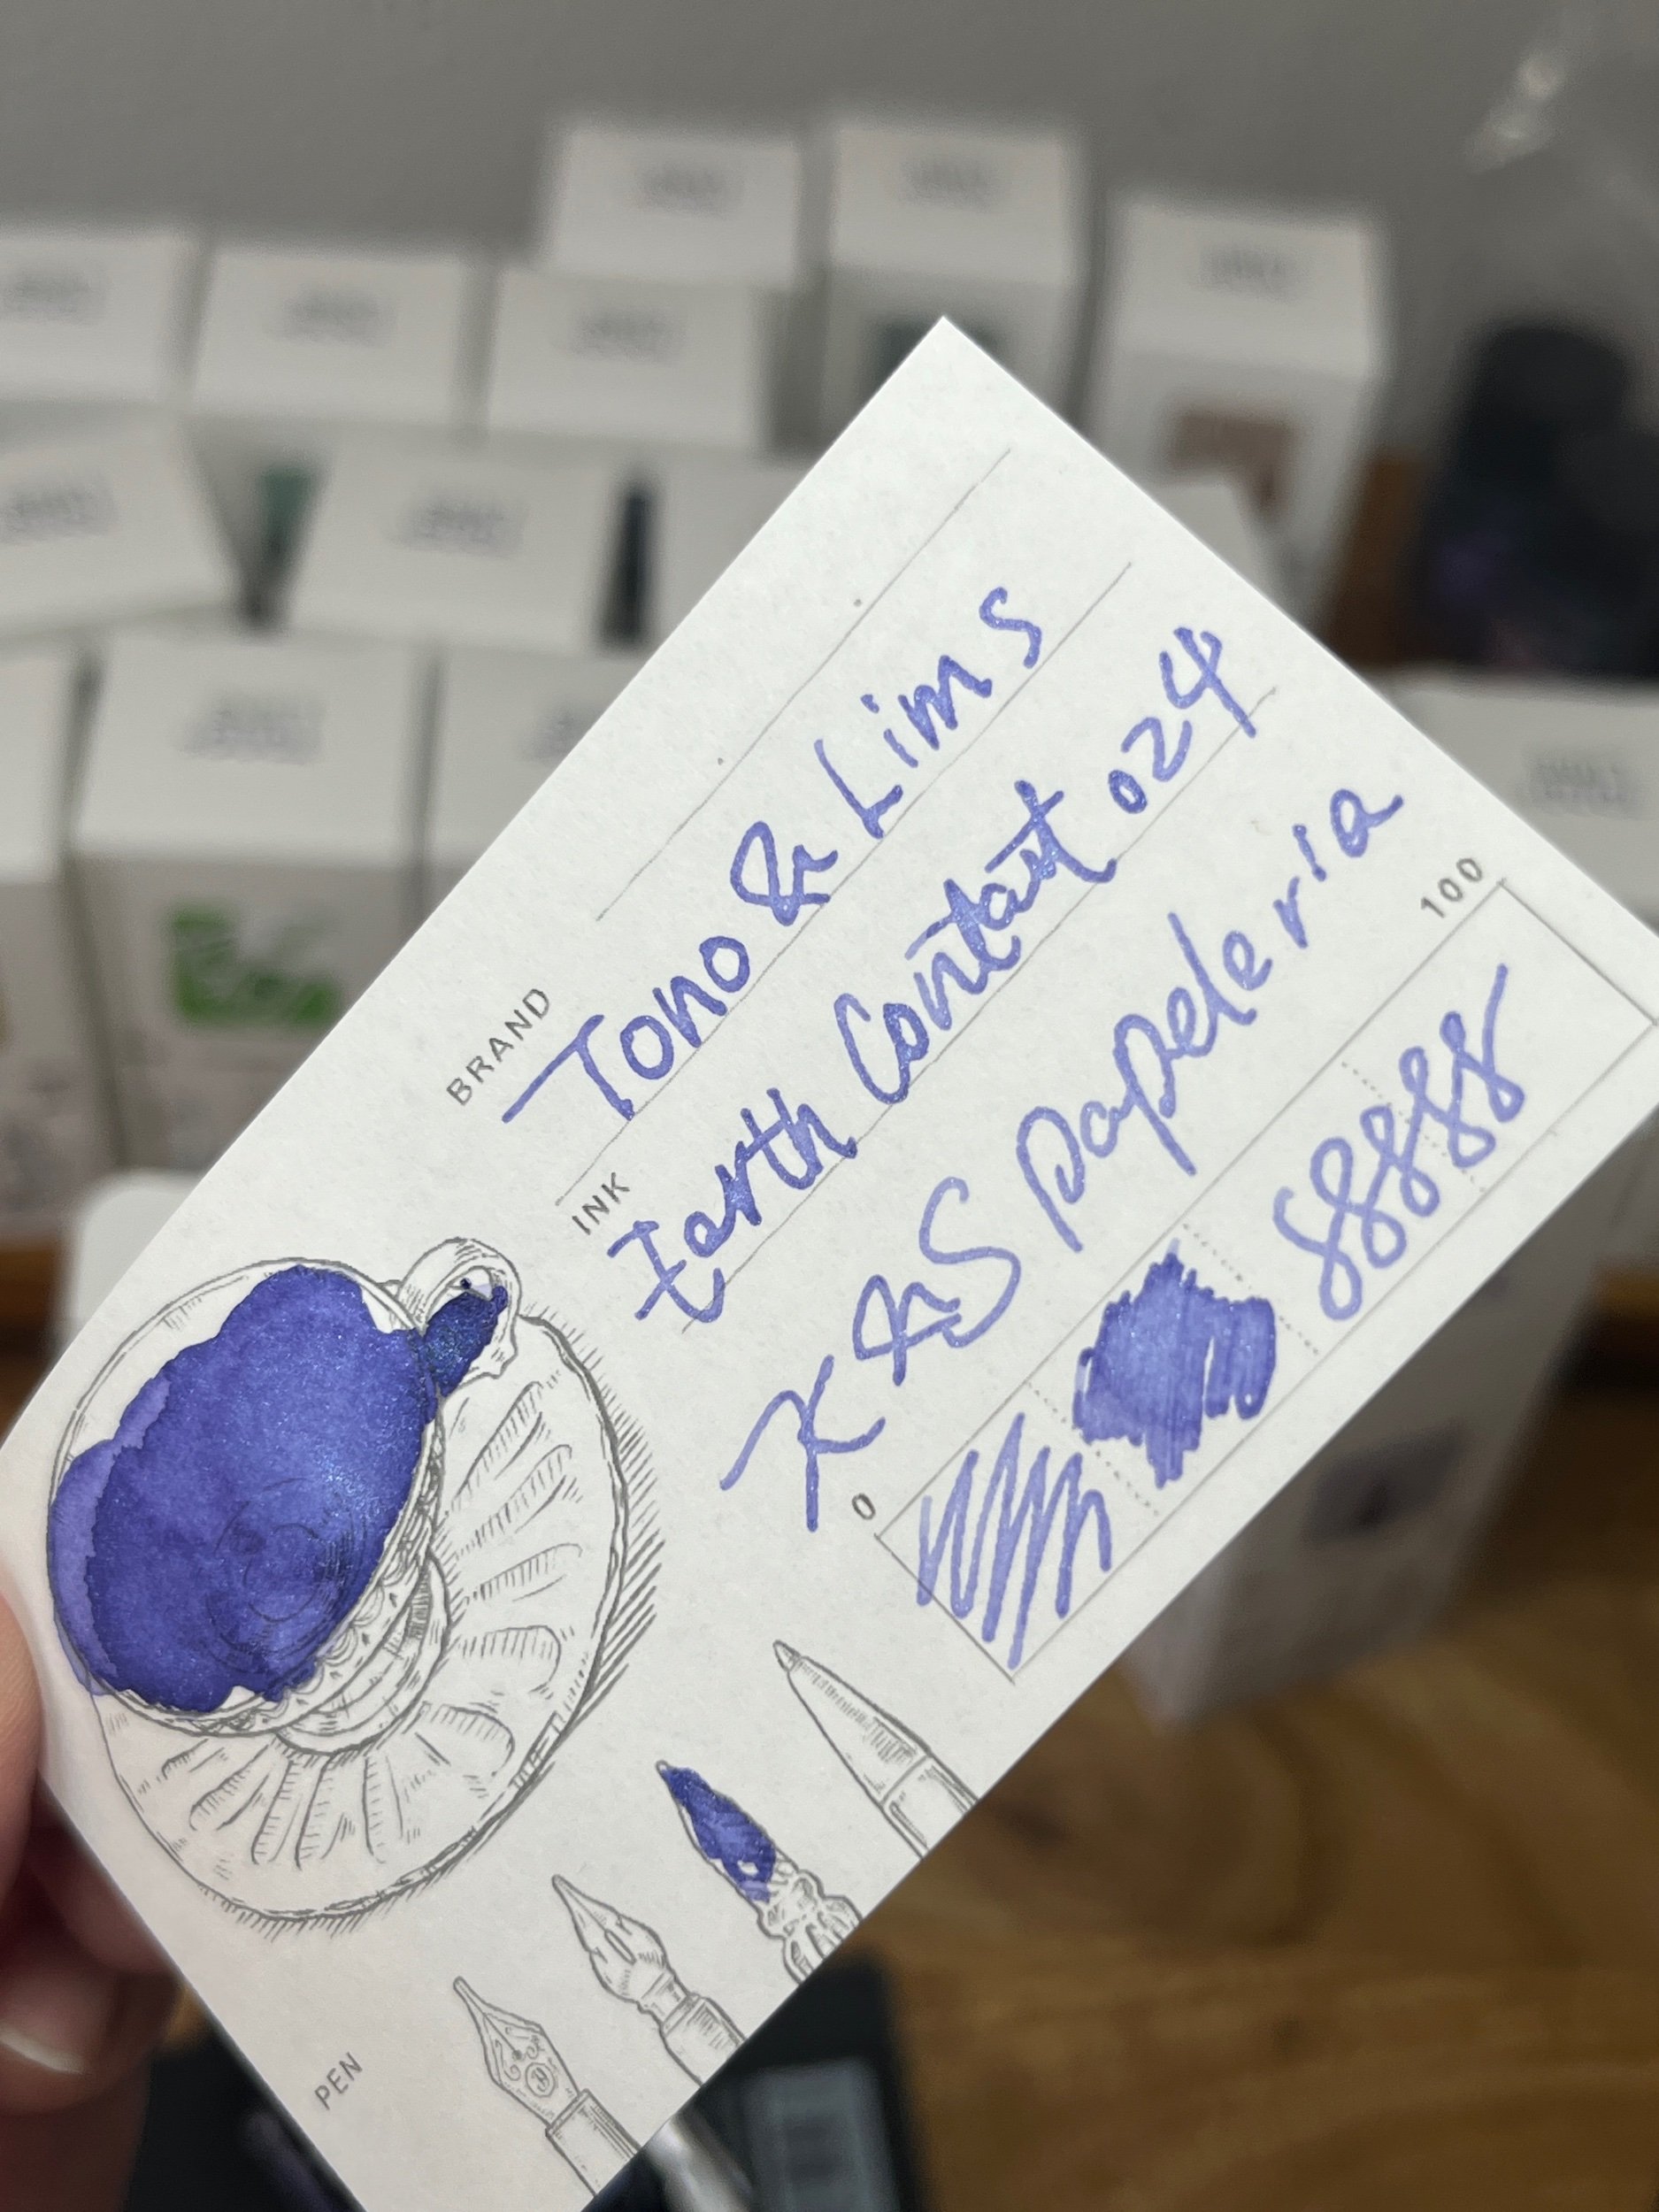 BRAND Tono & Lims
INK Earth Contant 024
K&S papeleria
0 100
8888
PEN